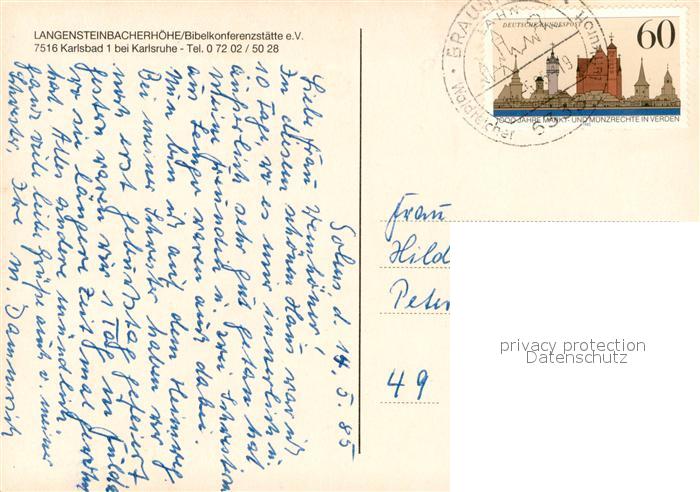 LANGENSTEINBACHERHÖHE/Bibelkonferenzstätte e.V.
7516 Karlsbad 1 bei Karlsruhe - Tel. 0 72 02 / 50 28
DEUTSCHE BUNDESPOST
60
1000 JAHRE MARKT- UND MÜNZRECHTE IN VERDEN
BRAUN
Waldreicher
Solms d. 14. 5. 85
Liebe Frau
In diesem schönen Haus war ich
10 Tage, wo es mir innerlich u.
äußerlich sehr gut getan hat
meine Freundin u. zwei Schwestern
aus Lemgo waren auch dabei.
Nun bin ich auf dem Heimweg.
Bei meiner Schwester haben wir
noch erst Geburtstag gefeiert
gestern waren wir 1 Tag in Fulda
wo sie längere Zeit mal gewohnt
hat. Alles andere mündlich
ganz viele liebe Grüße auch v. meiner
Schwester, Ihre M.
Frau
Hild
Peter
49
privacy protection
Datenschutz